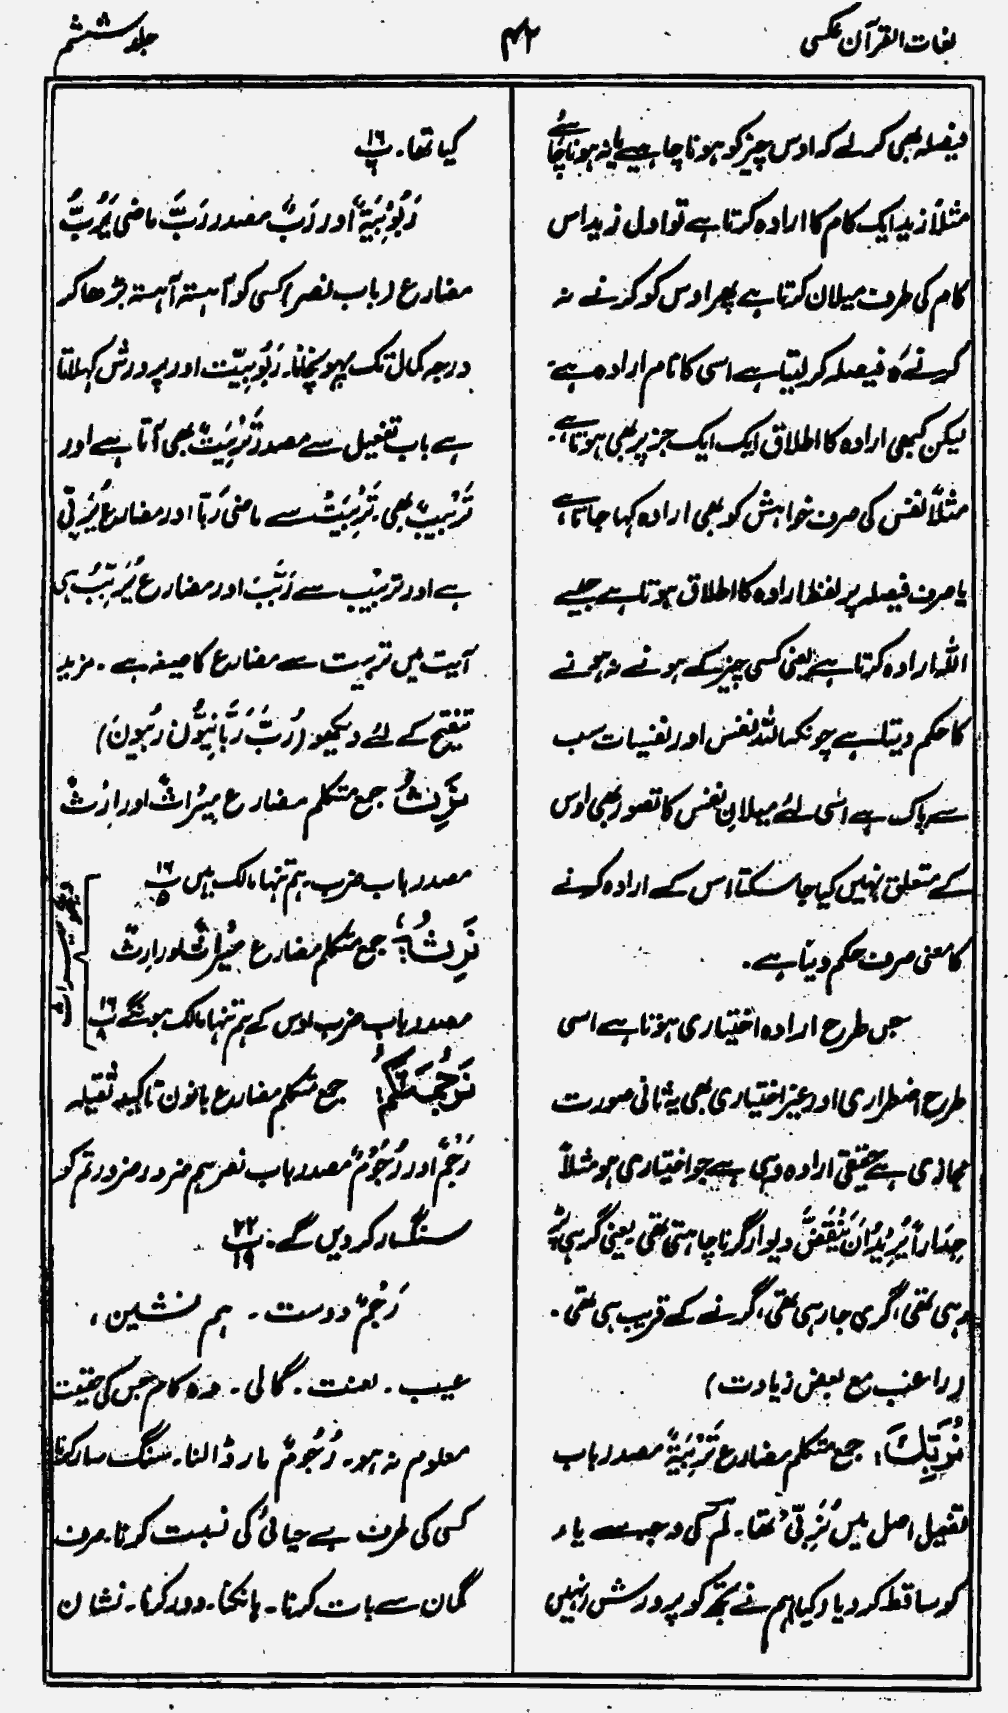 لغات القرآن عکسی
۴۲
جلد ششم
فیصلہ بھی کر لے کہ اوس چیز کو ہونا چاہیے یا نہ ہونا چاہئے
مثلاً زید ایک کام کا ارادہ کرتا ہے تو اول زید اس
کام کی طرف میلان کرتا ہے پھر اوس کو کرنے نہ
کرنے کا فیصلہ کر لیتا ہے اسی کا نام ارادہ ہے۔
لیکن کبھی ارادہ کا اطلاق ایک ایک جز پر بھی ہوتا ہے۔
مثلاً نفس کی صرف خواہش کو بھی ارادہ کہا جاتا ہے،
یا صرف فیصلہ پر لفظ ارادہ کا اطلاق ہوتا ہے جیسے
اللہ ارادہ کرتا ہے یعنی کسی چیز کے ہونے نہ ہونے
کا حکم دیتا ہے چونکہ اللہ نفس اور نفسیات سب
سے پاک ہے اسی لئے میلانِ نفس کا تصور بھی اوس
کے متعلق نہیں کیا جا سکتا اس کے ارادہ کرنے
کا معنی صرف حکم دینا ہے۔
جس طرح ارادہ اختیاری ہوتا ہے اسی
طرح اضطراری اور غیر اختیاری بھی یہ ثانی صورت
مجازی ہے حقیقی ارادہ وہی ہے جو اختیاری ہو مثلاً
جِدَاراً یُرِیْدُ اَنْ یَّنْقَضَّ دیوار گرنا چاہتی تھی یعنی گری پڑ
رہی تھی، گری جا رہی تھی، گرنے کے قریب ہی تھی۔
(راغب مع بعض زیادت)
نُرَبِّكَ: جمع متکلم مضارع تَرْبِیَۃٌ مصدر باب
تفعیل اصل میں نُرَبِّیْ تھا۔ لَمْ کی وجہ سے یاء
کو ساقط کر دیا (کیا) ہم نے تجھ کو پرورش نہیں
کیا تھا۔ پ ۱۶
رَبُوْبِیَۃٌ اور رَبٌّ مصدر رَبَّ ماضی یَرُبُّ
مضارع (باب نصر) کسی کو آہستہ آہستہ بڑھا کر
درجہ کمال تک پہونچانا۔ رَبُوبِیّت اور پرورش کہلاتا
ہے باب تفعیل سے مصدر تَرْبِیَتٌ بھی آتا ہے اور
تَرْبِیْبٌ بھی۔ تَرْبِیَتٌ سے ماضی رَبّا اور مضارع یُرَبِّی
ہے اور تربیب سے رَبَّبَ اور مضارع یُرَبِّبُ ہی
آیت میں تربیت سے مضارع کا صیغہ ہے۔ مزید
تنقیح کے لئے دیکھو (رَبّ رَبَّانِیُّوْن رِبِّیون)
نَرِثُ جمع متکلم مضارع مِیْرَاثٌ اور اِرْثٌ
مصدر باب ضرب۔ ہم تنہا مالک ہیں پ ۱۶ ۵
نَرِثُہٗ: جمع متکلم مضارع مِیْراثٌ اور اِرِثٌ
مصدر باب ضرب اوس کے ہم تنہا مالک ہونگے پ ۱۶ ۸
نَرْجُمَنَّكُمْ: جمع متکلم مضارع بانون تاکید ثقیلہ
رَجْمٌ اور رُجُوْمٌ مصدر باب نصر ہم ضرور ضرور تم کو
سنگسار کر دیں گے: پ ۲۲ ۱۹
رَجْمٌ دوست۔ ہم نشین،
عیب۔ لعنت۔ گالی۔ وہ کام جس کی حقیقت
معلوم نہ ہو۔ رُجُومٌ مار ڈالنا۔ سنگ سار کرنا
کسی کی طرف بے حیائی کی نسبت کرنا۔ صرف
گمان سے بات کرنا۔ ہانکنا۔ دور کرنا۔ نشان